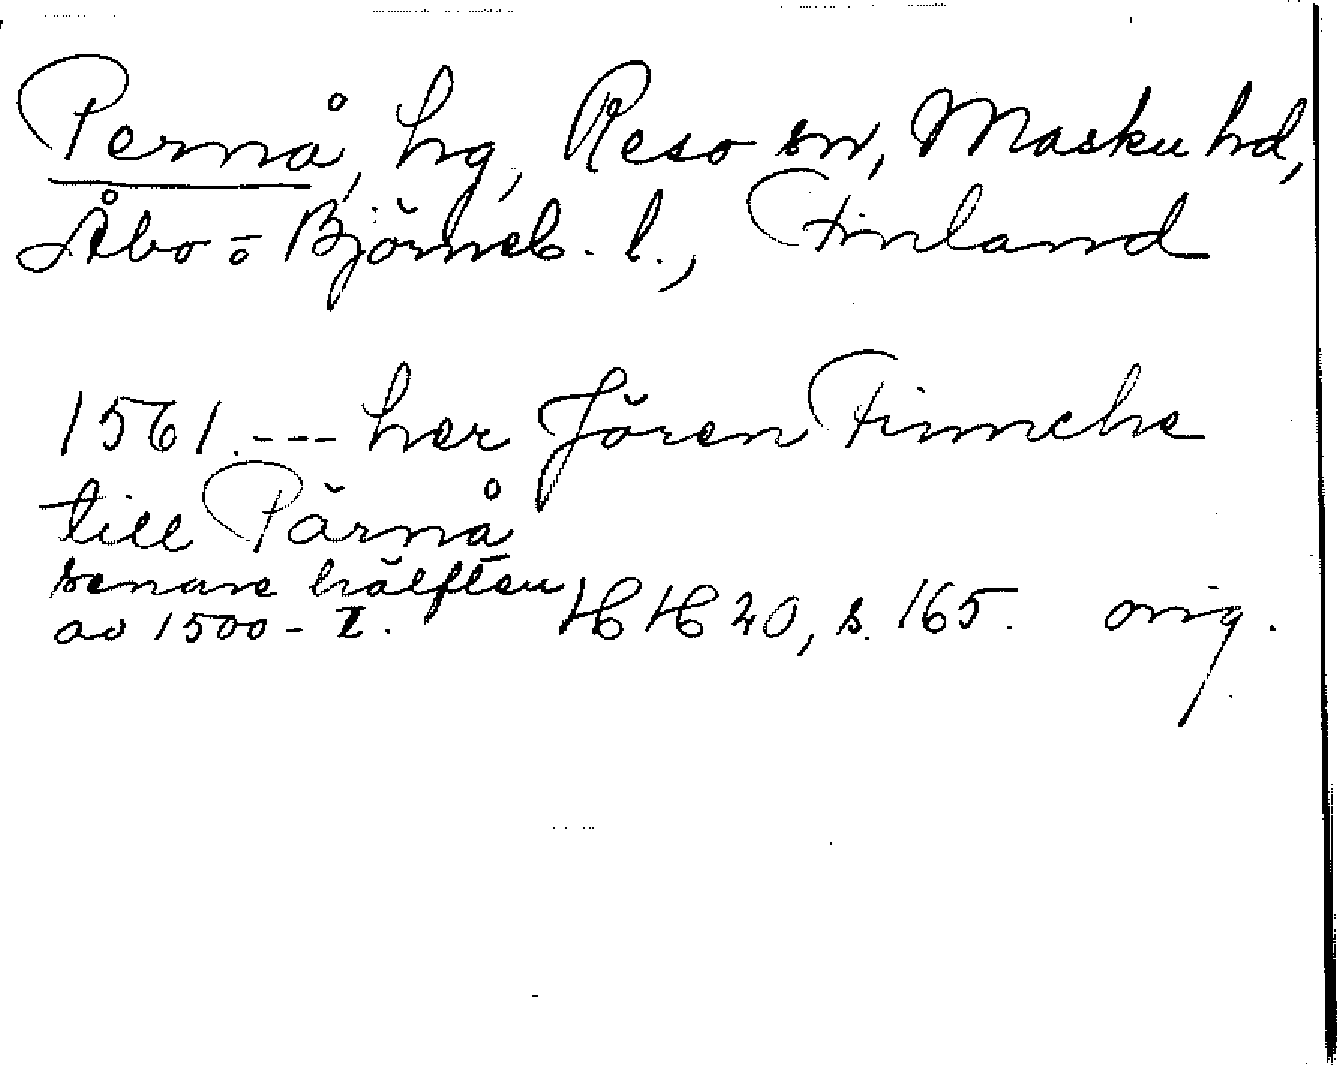 Pernå, hg, Reso sn, Masku hd,
Åbo-ö Björneb. l., Finland
1561. --- her Jören Fincke
till Pärnå
senare hälften
av 1500-t. HH 20, s. 165. orig.